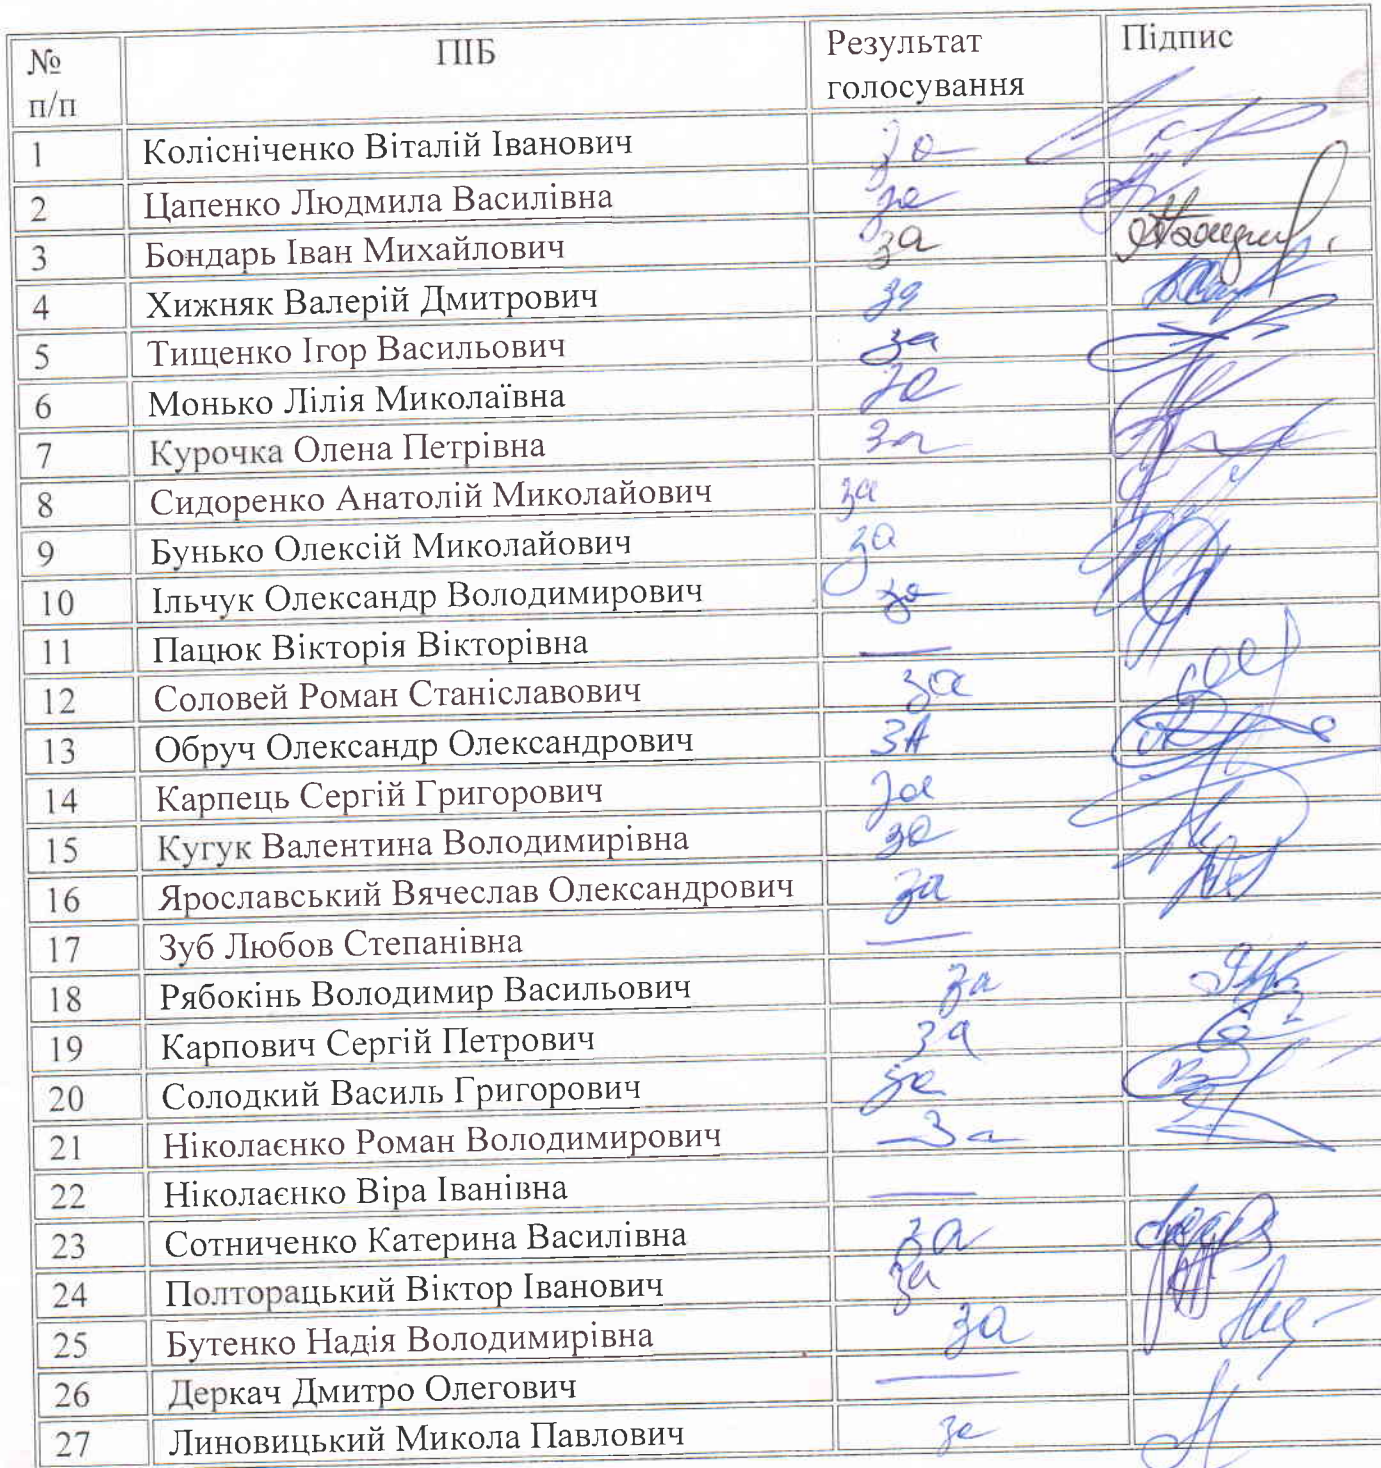 № п/п ПІБ Результат голосування Підпис
1 Колісніченко Віталій Іванович за
2 Цапенко Людмила Василівна за
3 Бондарь Іван Михайлович за
4 Хижняк Валерій Дмитрович за
5 Тищенко Ігор Васильович за
6 Монько Лілія Миколаївна за
7 Курочка Олена Петрівна за
8 Сидоренко Анатолій Миколайович за
9 Бунько Олексій Миколайович за
10 Ільчук Олександр Володимирович за
11 Пацюк Вікторія Вікторівна —
12 Соловей Роман Станіславович за
13 Обруч Олександр Олександрович ЗА
14 Карпець Сергій Григорович за
15 Кугук Валентина Володимирівна за
16 Ярославський Вячеслав Олександрович за
17 Зуб Любов Степанівна —
18 Рябокінь Володимир Васильович за
19 Карпович Сергій Петрович за
20 Солодкий Василь Григорович за
21 Ніколаєнко Роман Володимирович За
22 Ніколаєнко Віра Іванівна —
23 Сотниченко Катерина Василівна за
24 Полторацький Віктор Іванович за
25 Бутенко Надія Володимирівна за
26 Деркач Дмитро Олегович —
27 Линовицький Микола Павлович за